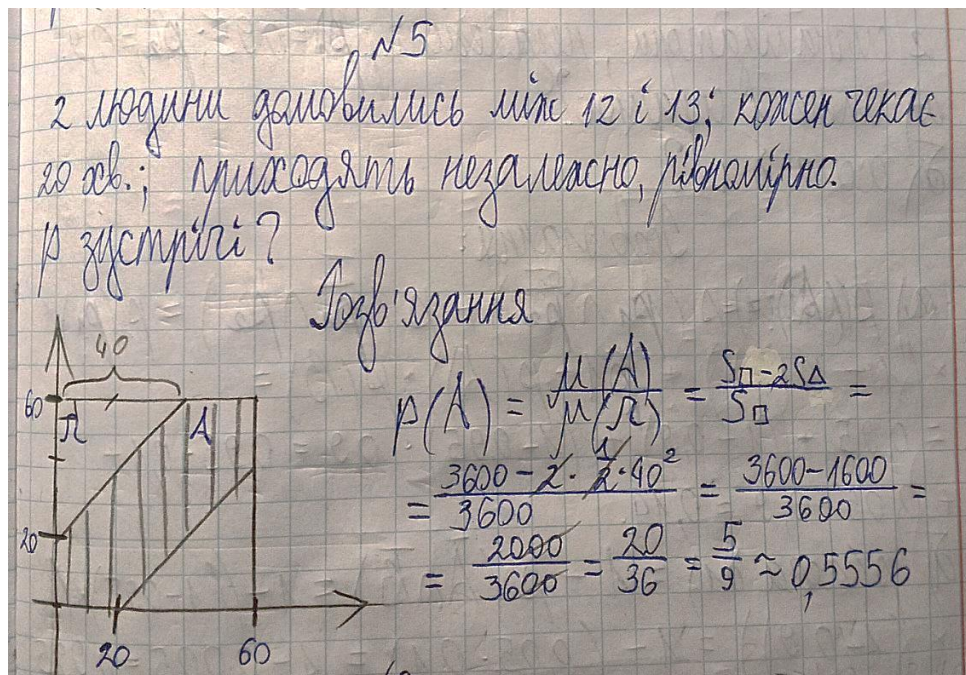 №5
2 людини домовились між 12 і 13; кожен чекає
20 хв.; приходять незалежно, рівномірно.
P зустрічі?
Розв'язання
40
60
Ω
A
20
20
60
p(A) = μ(A)/μ(Ω) = (S□-2SΔ)/S□ =
= (3600-2·1/2·40²)/3600 = (3600-1600)/3600 =
= 2000/3600 = 20/36 = 5/9 ≈ 0,5556